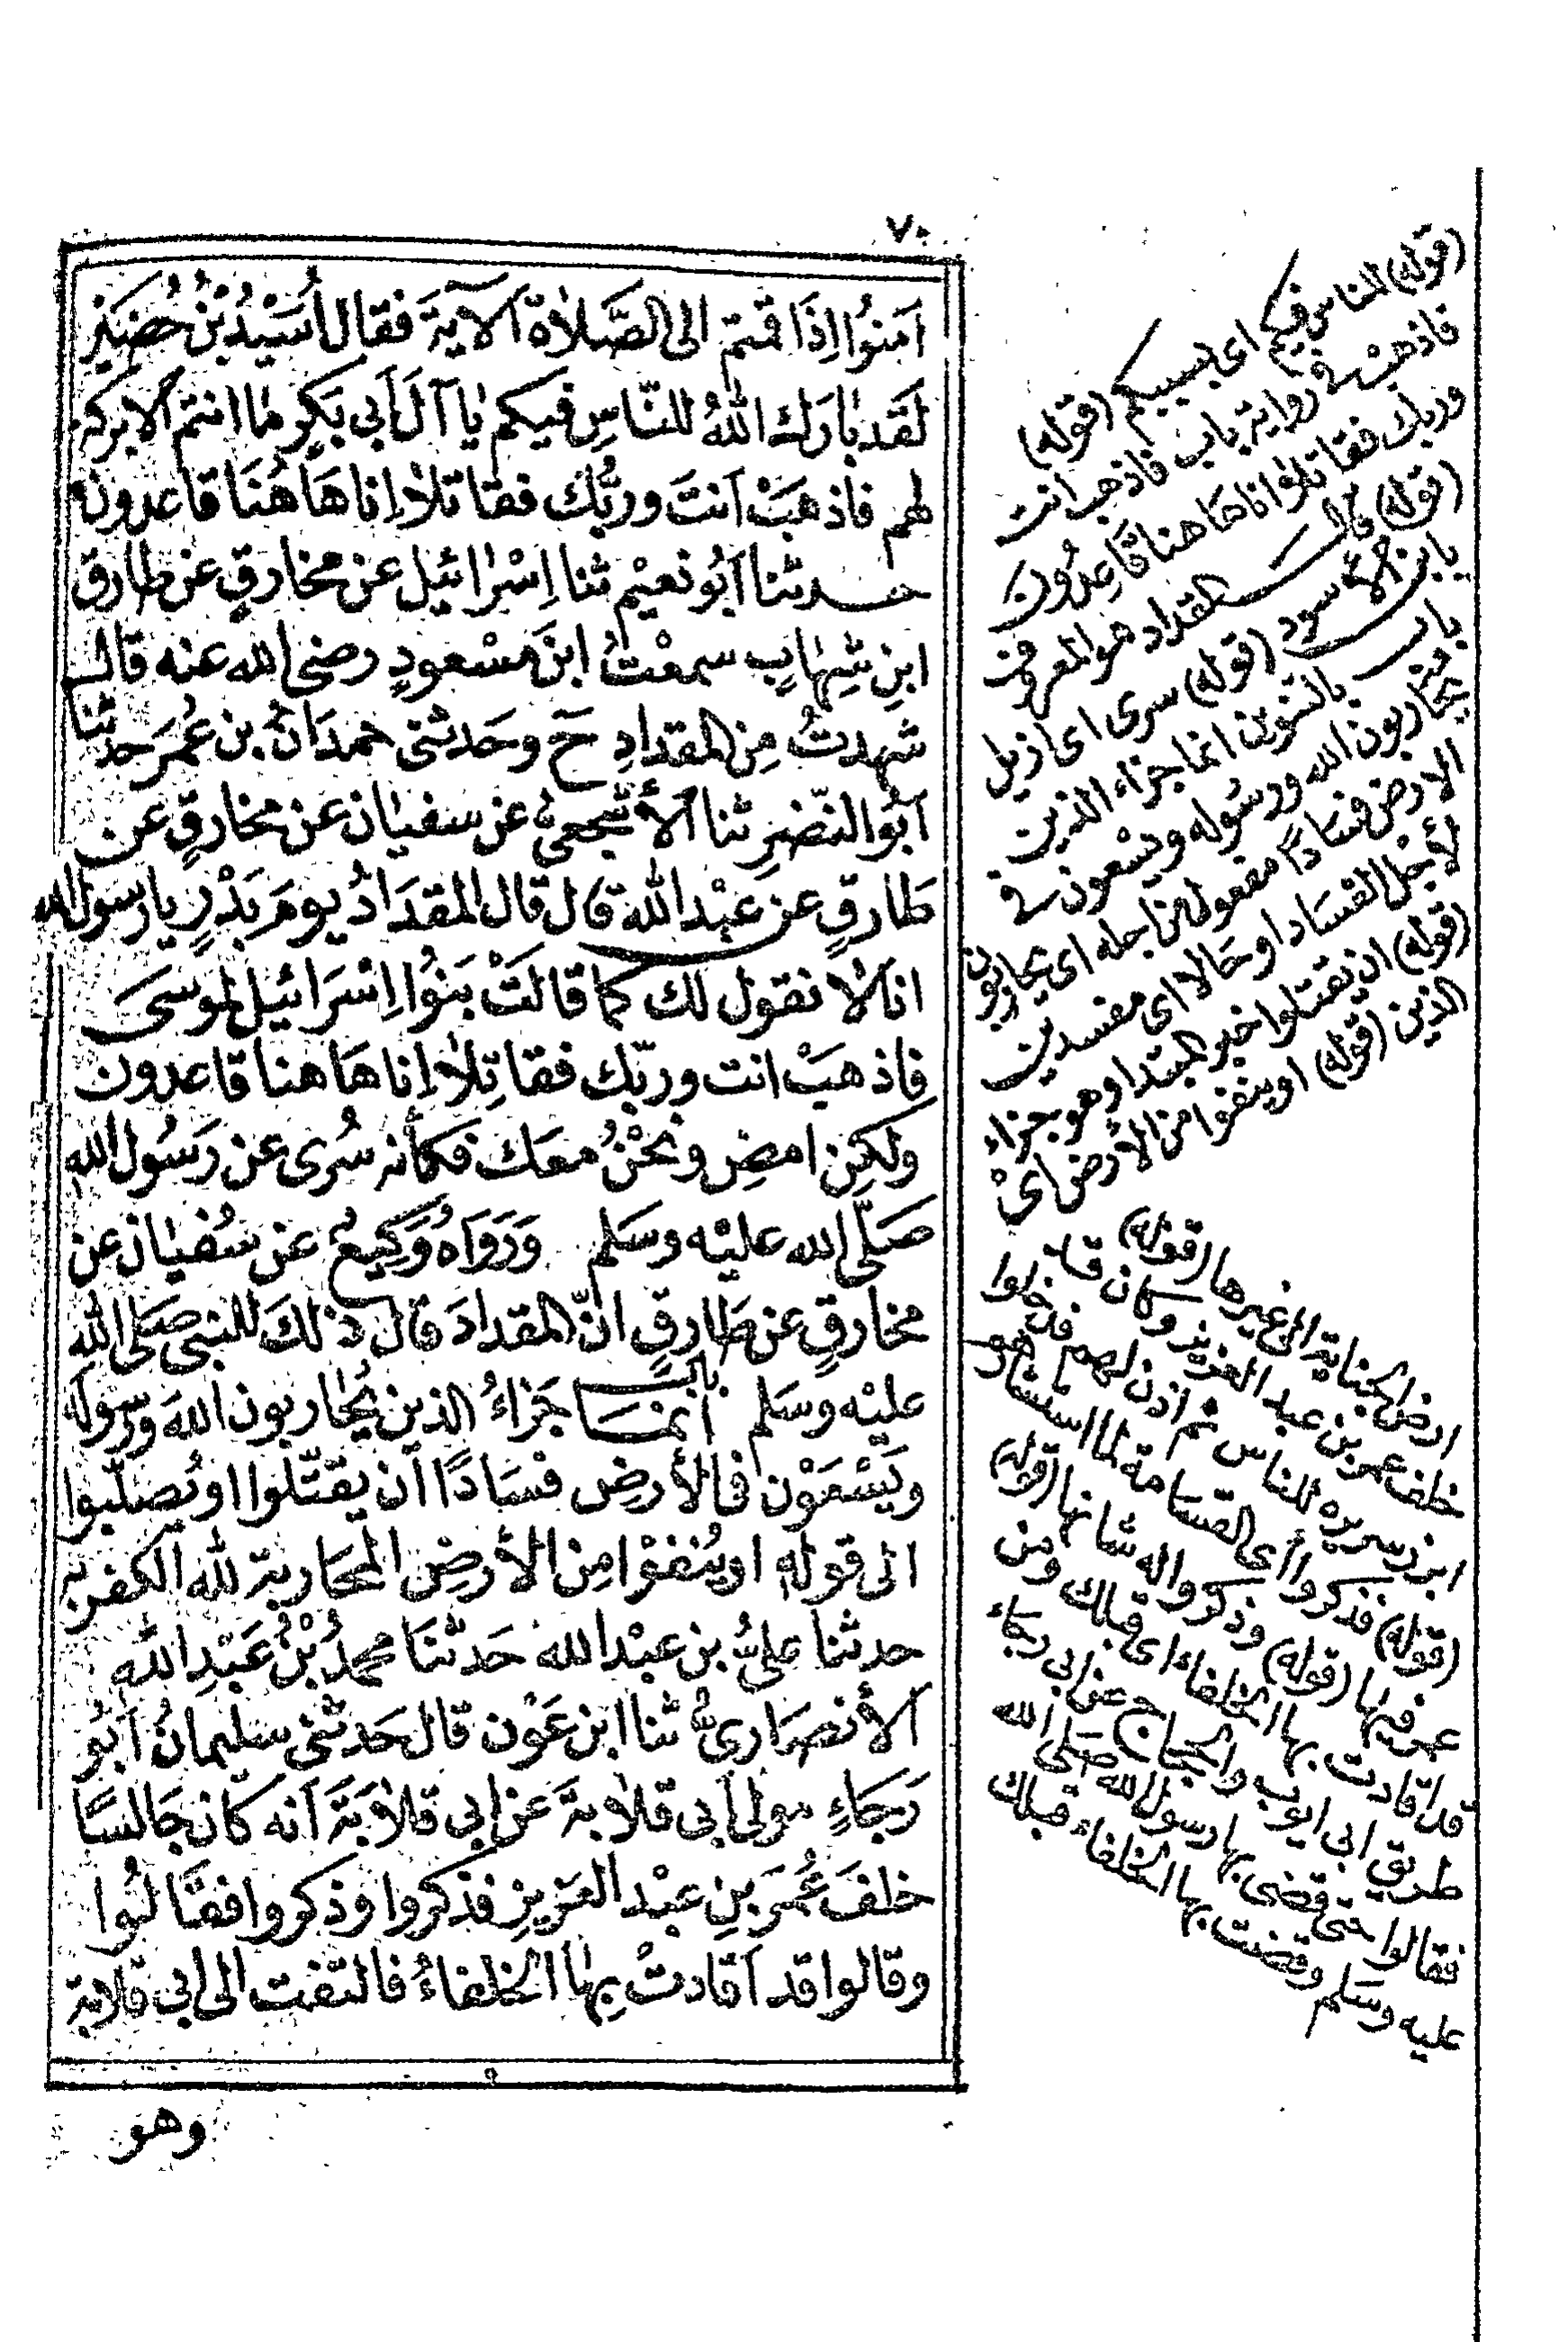 ٧٠
آمَنُوا اِذَا قمتم الى الصَّلاٰة اَلآيَةَ فقال اُسَيْدُ بْنُ حُضَيْرٍ
لَقَد بٰارَكَ اللهُ للنّاسِ فيكم يٰا آلَ اَبى بَكرٍ مٰا انتم الا بركة
لهم فاذهَبْ اَنتَ وربُّك فقاتلاٰ اِنا هَا هُنَا قاعدون
حدثنا اَبُو نعيْم ثنا اِسْرٰائيل عن مخارقٍ عن طارق
ابنِ شِهٰابٍ سمعْتُ ابنَ مَسْعودٍ رضى الله عنه قال
شهدتُ مِن المقدادِ حَ وحَدثنى حمدَانُ بن عُمَرَ حدثنا
اَبُو النّضرِ ثنا اَلأَشجعىُّ عن سفيٰان عن مخارقٍ عن
طارقٍ عن عبْدالله قال قال المقدَادُ يومَ بَدْرٍ يا رسول الله
انا لاٰ نقول لك كما قالَتْ بَنُوا اِسْرَائيل لموسَى
فاذهَبْ انت وربّك فقاتِلاٰ اِنا هَا هنا قاعدون
ولٰكِن امضِ ونحْنُ معَك فكأنه سُرى عن رَسُول الله
صَلّى الله عليْه وسَلم وَرَوَاه وَكيعٌ عن سُفيٰان عن
مخارقٍ عن طَارقٍ انّ المقدادَ قال ذٰلكَ للنبى صَلى الله
باب
عليْه وسَلم انمَا جَزاءُ الذين يُحٰاربون اللهَ ورسوله
ويَسْعَوْن فى الأرضِ فسَادًا اَن يقتّلوا او يُصلّبوا
الى قولهِ او يُنفوْا مِن الأرضِ المحَاربة لله الكفر به
حدثنا علىُّ بن عبْدالله حَدثنَا محمدُ بْنُ عَبْدِالله
اَلأنصَارىُّ ثنا ابن عَوْن قال حَدثنى سليمانُ اَبُو
رَجَاءٍ مولى اَبى قلاٰبةَ عن ابى قلاٰبَةَ اَنه كان جَالسًا
خلفَ عُمَرَ بنِ عبْد العَزيزِ فذكروا وذكروا فقَالُوا
وقالوا قد اَقادتْ بِهٰا الخلفاءُ فالتفت الى ابى قلابة
وهو
(قوله) للناس فيكم اى بسببكم (قوله)
فاذهبْ فى رواية باب فاذهب انت
وربك فقاتلاٰ انا هَا هنا قَاعِدُون
(قوله) قال المقداد هو المعروف
بابن الأسود (قوله) سرى اى ازيل
باب بالتنوين انما جزاء الذين
يحاربون الله ورسُوله ويسْعون فى
الارض فسَادًا مفعول من اجله اى يحاربون
لأجل الفسَاد او حَالا اى مفسدين
(قوله) ان يقتلوا خبر المبتدا وهو جزاء
الذين (قوله) او ينفوا من الأرض اىْ
ارض الجناية الى غيرها (قوله)
خلف عمر بن عبد العزيز وكان قد
ابرز سريره للناس ثم اذن لهم فدخلوا
(قوله) فذكروا اى القسامة لما استشارهم
عمر فيها (قوله) وذكروا له شانها (قوله)
قد اقادت بها الخلفاء اى قبلك ومن
طريق ابى ايوب والحجاج عن ابى رجاء
فقالوا حتى قضى بها رسول الله صَلى الله
عليه وسَلم وقضت بها الخلفاء قبلك